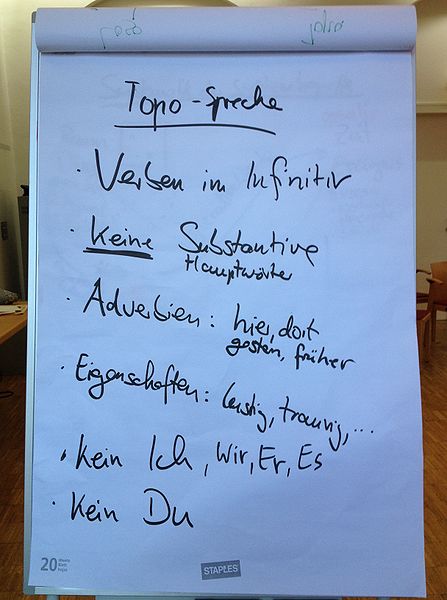 Topo-Sprache
· Verben im Infinitiv
· Keine Substantive
Hauptwörter
· Adverbien: hier, dort
gestern, früher
· Eigenschaften: lustig, traurig, ...
· Kein Ich, Wir, Er, Es
· Kein Du
20
STAPLES